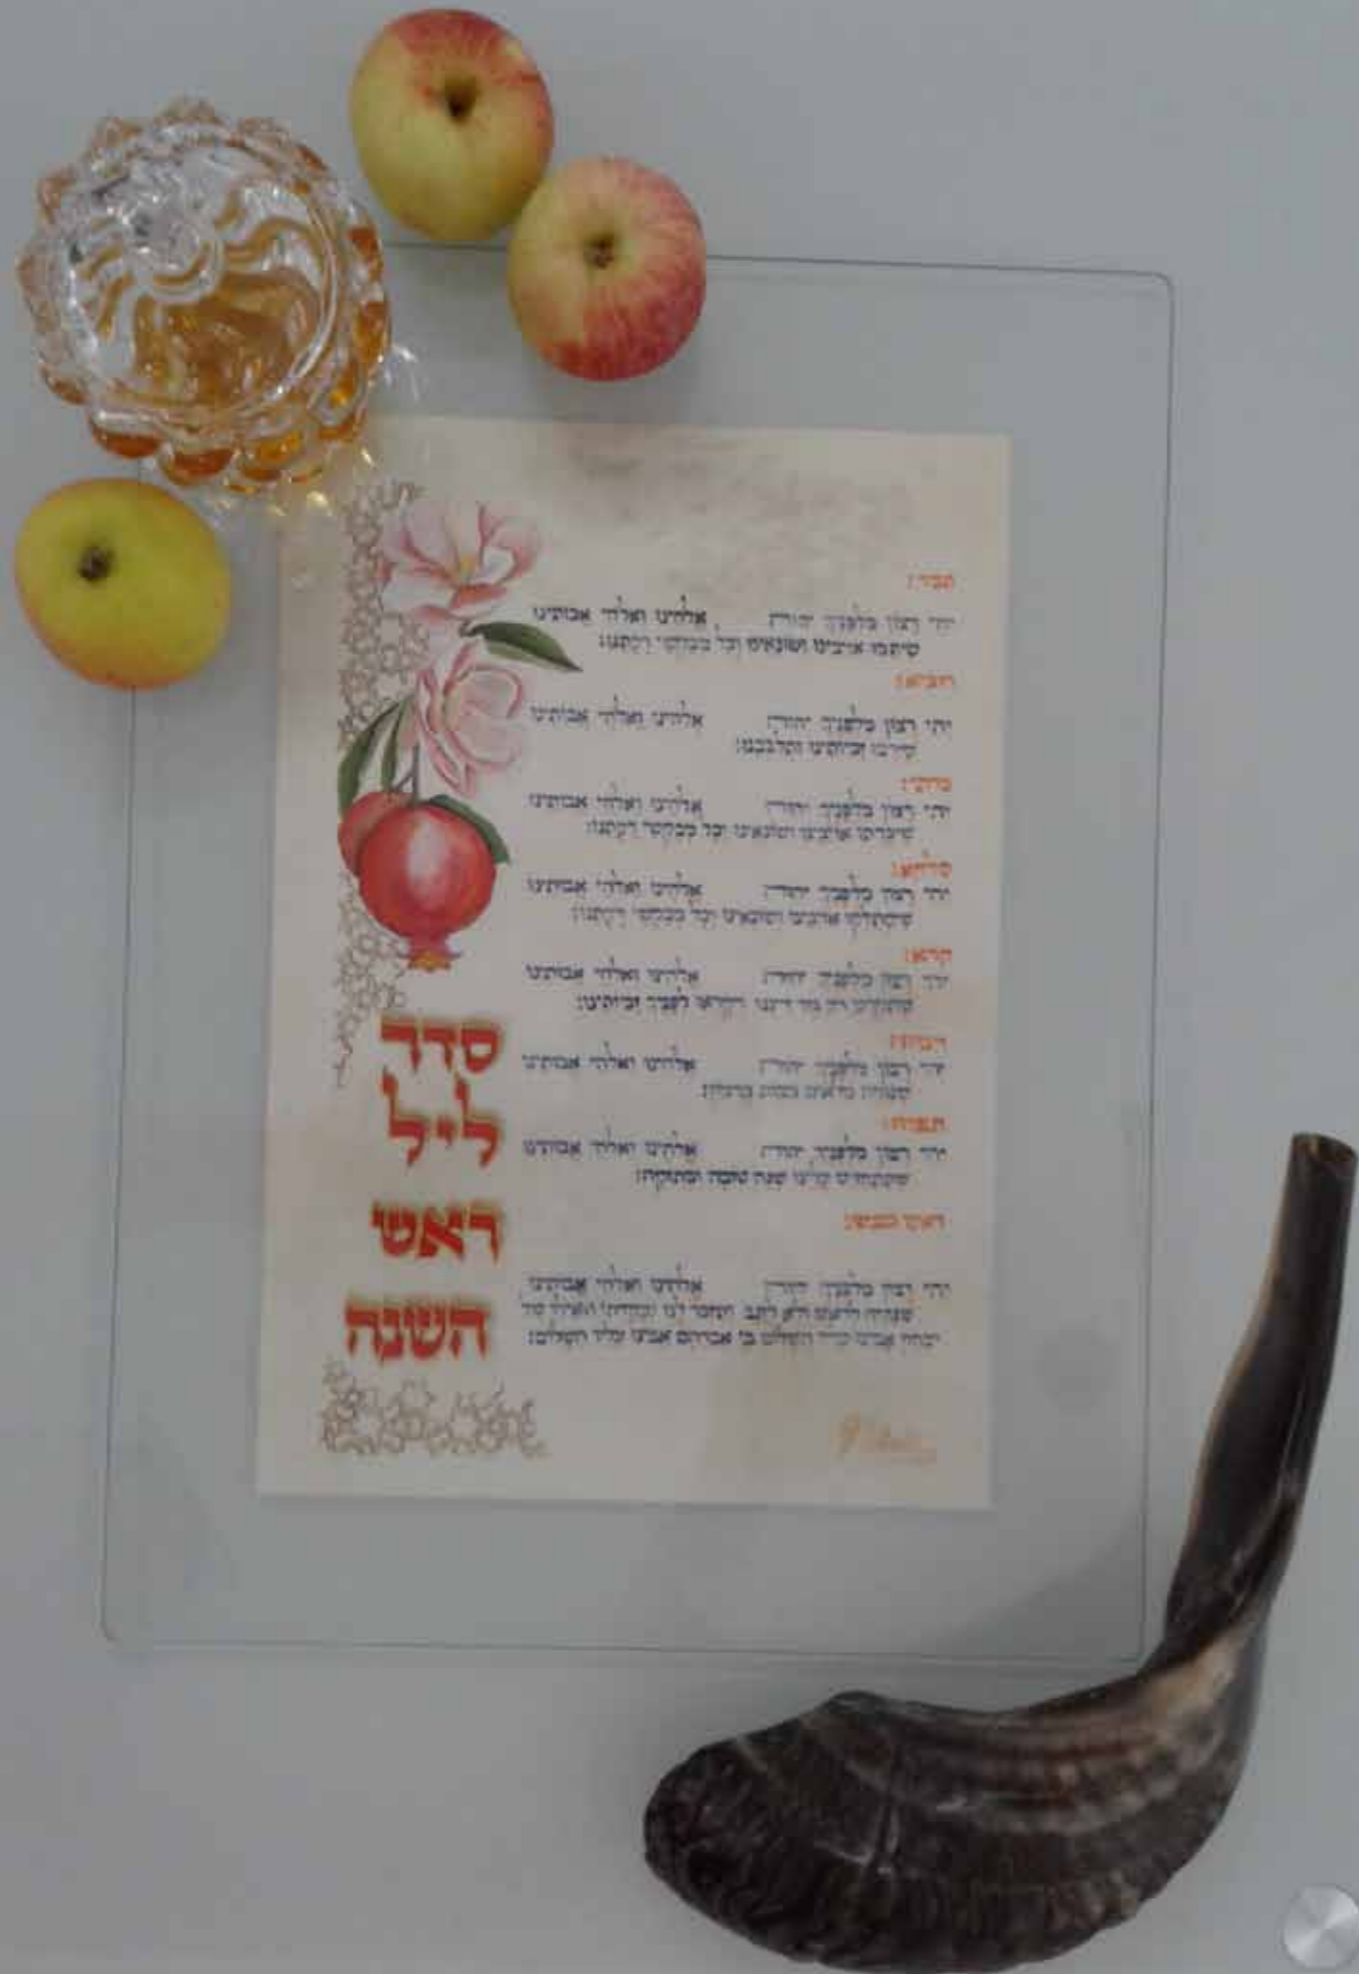 תמר:
יהי רצון מלפניך יהוה, אלהינו ואלהי אבותינו
שיתמו אויבינו ושונאינו וכל מבקשי רעתנו:
רוביא:
יהי רצון מלפניך יהוה אלהינו ואלהי אבותינו
שירבו זכיותינו ותלבבנו:
כרתי:
יהי רצון מלפניך יהוה אלהינו ואלהי אבותינו
שיכרתו אויבינו ושונאינו וכל מבקשי רעתנו:
סלקא:
יהי רצון מלפניך יהוה אלהינו ואלהי אבותינו
שיסתלקו אויבינו ושונאינו וכל מבקשי רעתנו:
קרא:
יהי רצון מלפניך יהוה אלהינו ואלהי אבותינו
רוע גזר דיננו ויקראו לפניך זכיותינו:
רמון:
יהי רצון מלפניך יהוה אלהינו ואלהי אבותינו
מלאים מצות כרמון:
תפוח:
יהי רצון מלפניך יהוה אלהינו ואלהי אבותינו
שתתחדש עלינו שנה טובה ומתוקה:
ראש כבש:
יהי רצון מלפניך יהוה אלהינו ואלהי אבותינו
שנהיה לראש ולא לזנב ותזכר לנו ואילו של
יצחק אבינו עליו השלום בן אברהם אבינו עליו השלום:
סדר
ליל
ראש
השנה